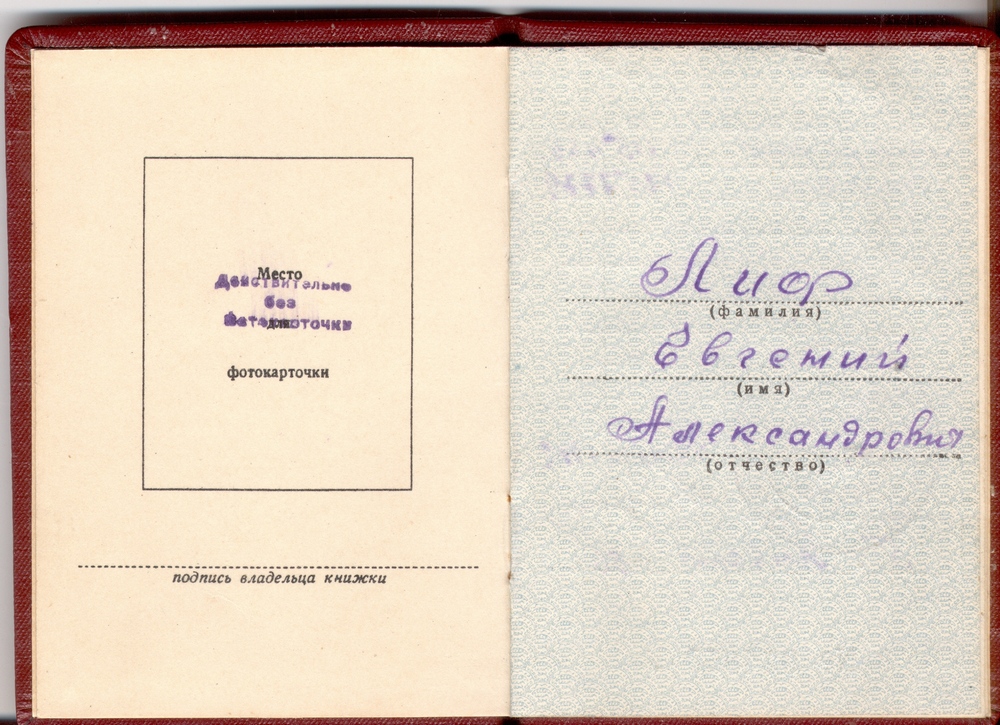 Место
Действительно
без
для
Фотокарточки
фотокарточки
подпись владельца книжки
Лиф
(фамилия)
Евгений
(имя)
Александрович
(отчество)